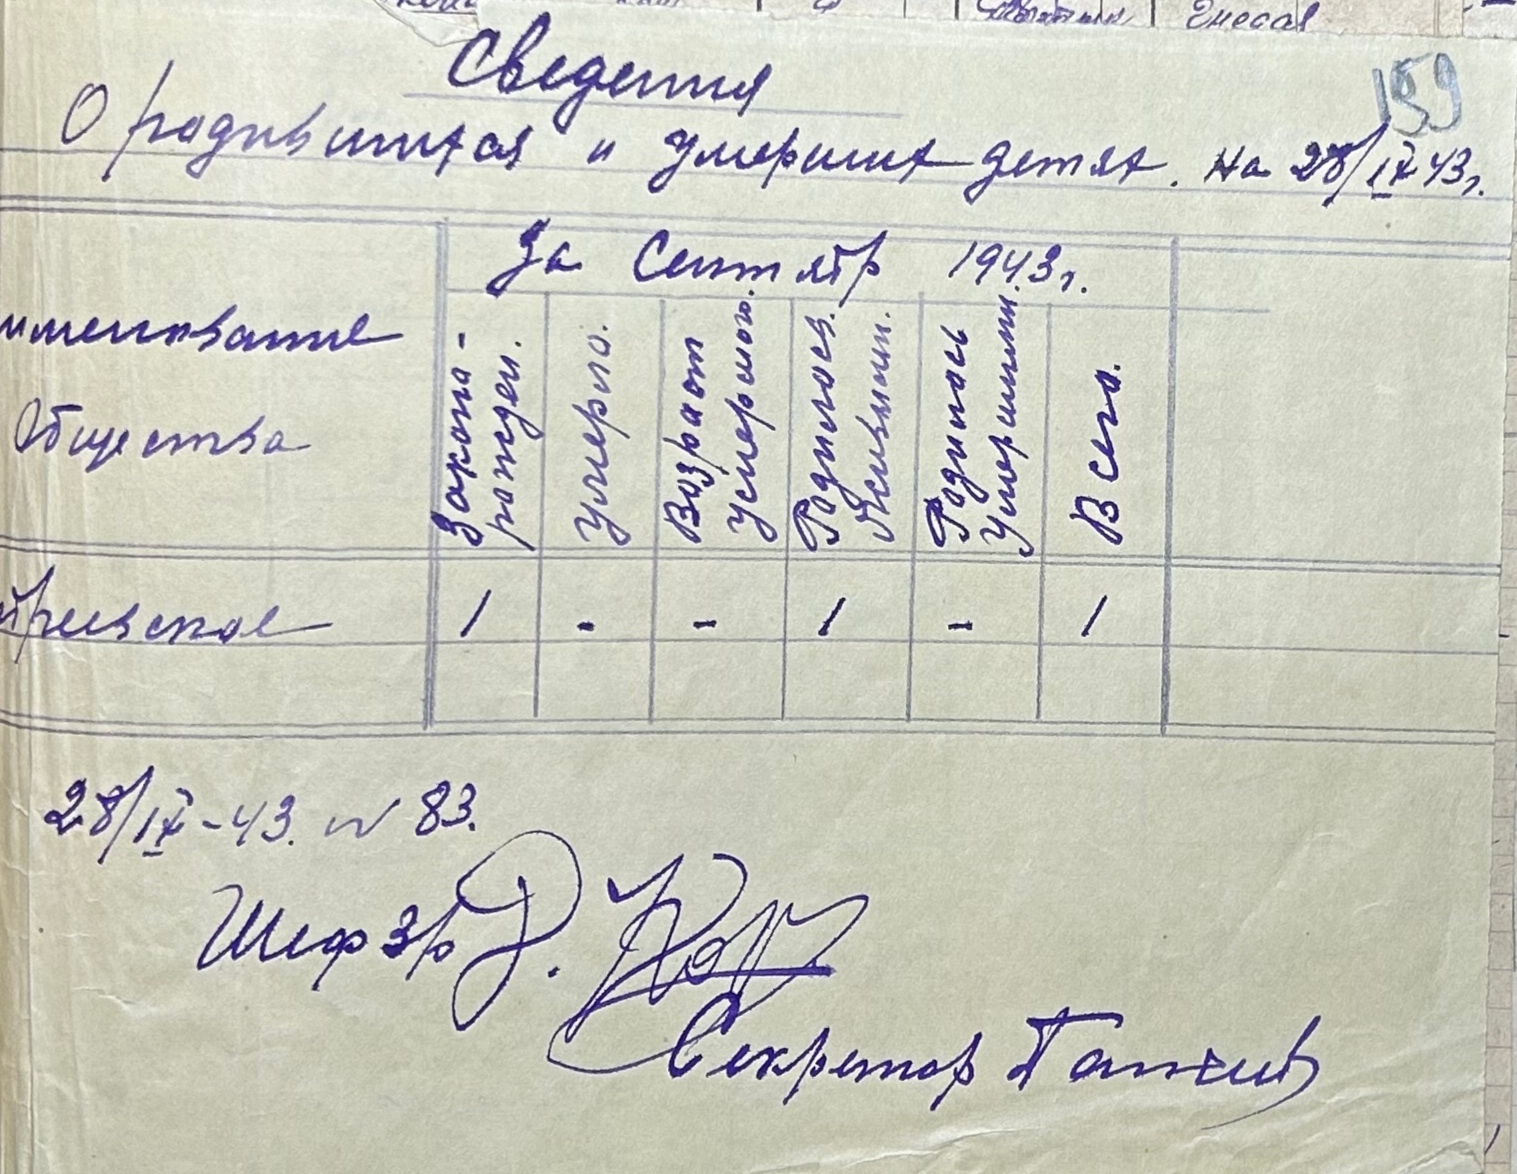 Сведения
159
О родившихся и умерших детях. на 28/IX 43 г.
именование
Общества
За Сентябр 1943 г.
Закона-
рожден.
умерло.
Возраст
умершого.
Родилось
Родилось
умершими
Всего.
1 - - 1 - 1
28/IX-43. N 83.
Шеф
Секретар